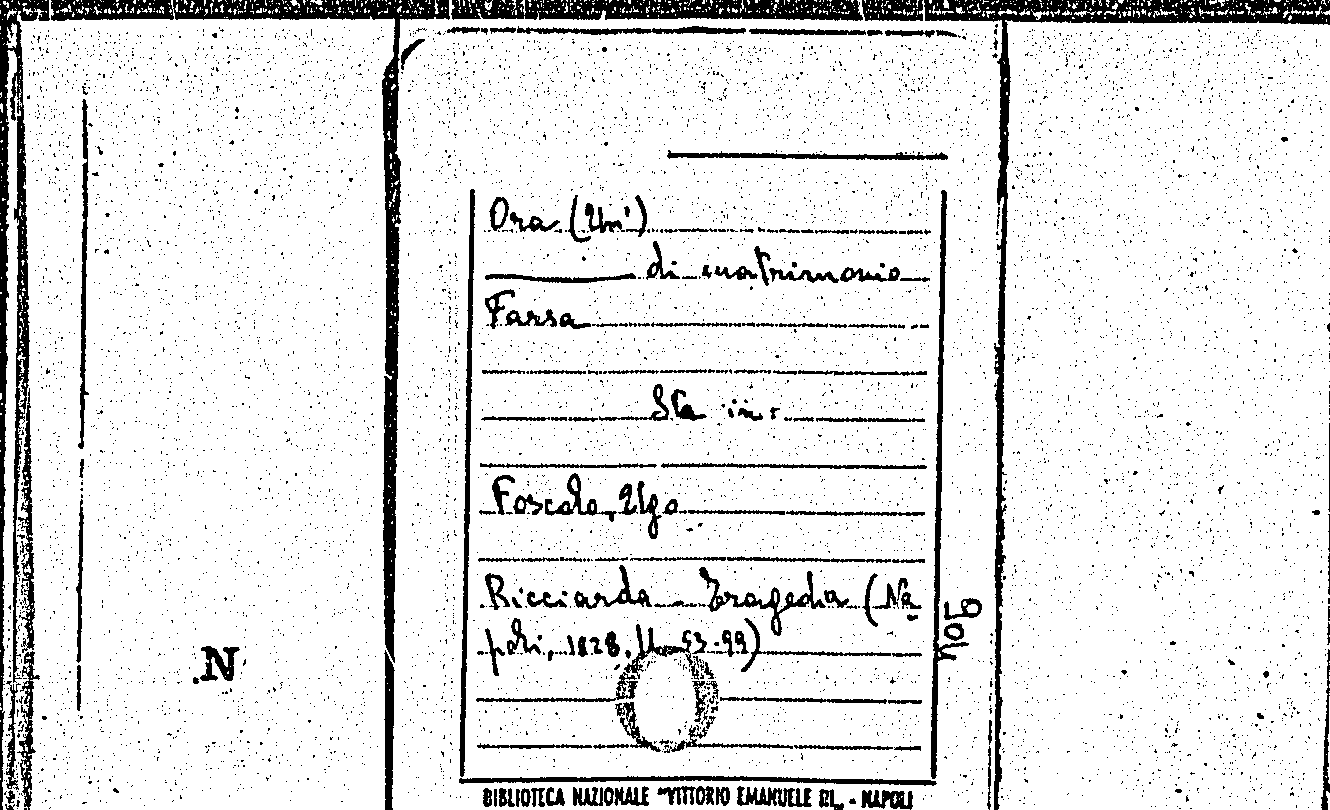 Ora (Un')
di matrimonio
Farsa
Sta in:
Foscolo, Ugo
Ricciarda Tragedia (Na
poli, 1828, 53-99)
.N
BIBLIOTECA NAZIONALE "VITTORIO EMANUELE III„ - NAPOLI